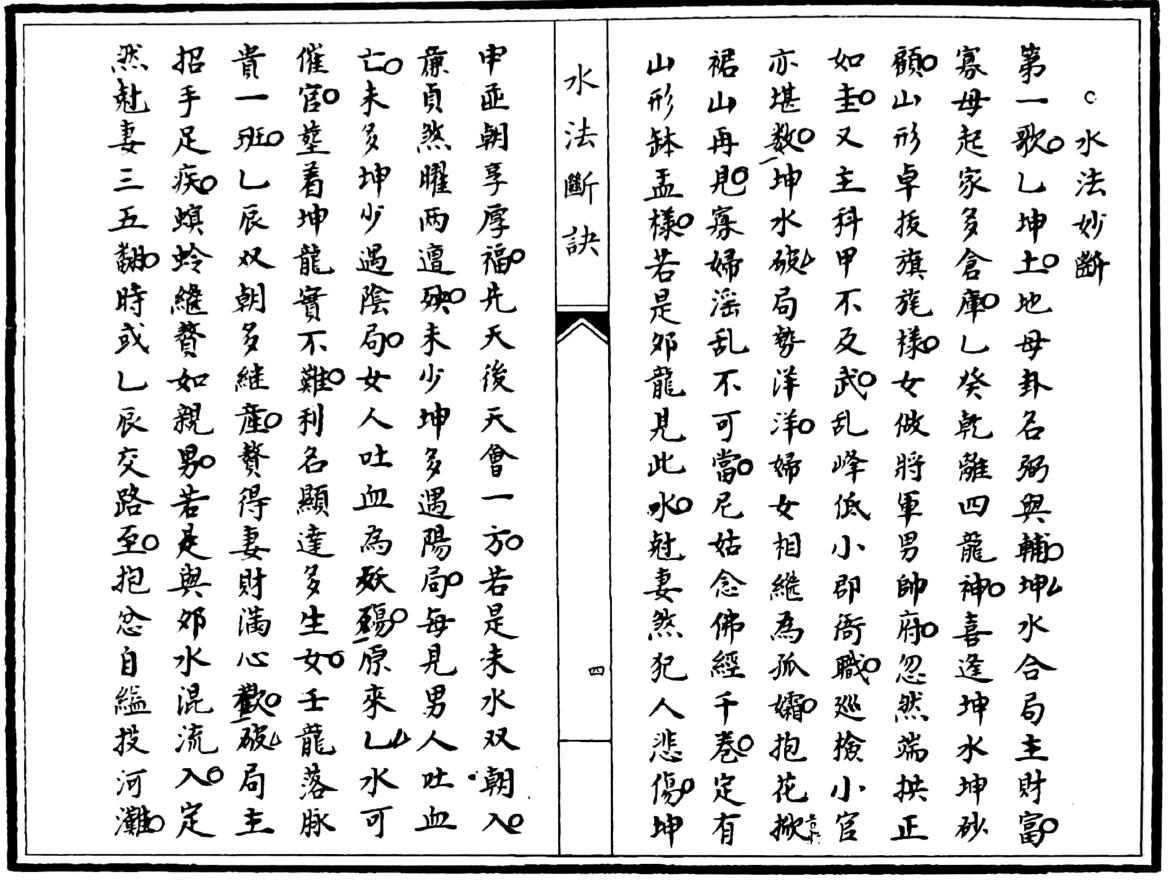 ○水法妙斷
第一歌○乚坤土○地母卦名弼與輔○坤水合局主財富○
寡母起家多倉庫○乚癸乾離四龍神○喜逢坤水坤砂
顧○山形卓拔旗旄樣○女做將軍男帥府○忽然端拱正
如圭○又主科甲不反武○乱峰低小郡衙職○廵撿小官
亦堪数○坤水破局勢洋洋○婦女相繼為孤孀○抱花掀
裙山再見○寡婦滛乱不可當○尼姑念佛經千卷○定有
山形缽盂樣○若是夘龍見此水○尅妻煞犯人悲傷○坤
水法斷訣
四
申亟朝享厚福○先天後天會一方○若是未水双朝入○
廉貞煞曜两邅殃○未少坤多遇陽局○每見男人吐血
亡○未多坤少遇陰局○女人吐血為殀殤○原來乚水可
催官○塟着坤龍實不難○利名顯達多生女○壬龍落脉
貴一班○乚辰双朝多继產○贅得妻財满心歡○破局主
招手足疾○螟蛉繼贅如親男○若是與夘水混流入○定
然尅妻三五翻○時或乚辰交路至○抱忿自縊投河灘○